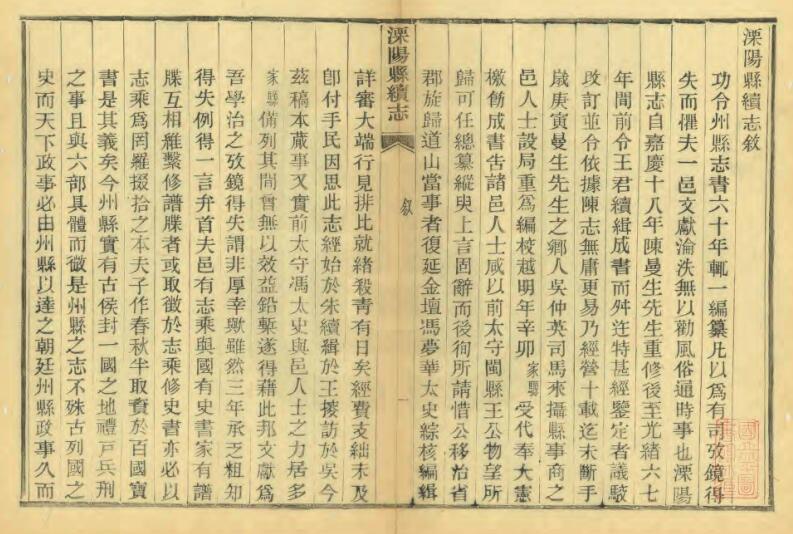 溧陽縣續志敘
功令州縣志書六十年輒一編纂凡以爲有司攷鏡得
失而懼夫一邑文獻淪泆無以勸風俗通時事也溧陽
縣志自嘉慶十八年陳曼生先生重修後至光緒六七
年間前令王君續緝成書而舛迕特甚經鑒定者議駁
改訂並令依據陳志無庸更易乃經營十載迄未斷手
歲庚寅曼生先生之鄉人吳仲英司馬來攝縣事商之
邑人士設局重爲編校越明年辛卯家驤受代奉大憲
檄創成書告諸邑人士咸以前太守閩縣王公物望所
歸可任總纂縱臾上言固辭而後徇所請惜公移治省
郡旋歸道山當事者復延金壇馮夢華太史綜核編緝
溧陽縣續志
敘
一
詳審大端行見排比就緒殺靑有日矣經費支絀未及
卽付手民因思此志經始於朱續緝於王接訪於吳今
茲稿本蕆事又實前太守馮太史與邑人士之力居多
家驤備列其間曾無以效益鉛槧遂得藉此邦文獻爲
吾學治之攷鏡得失謂非厚幸歟雖然三年承乏粗知
得失例得一言弁首夫邑有志乘與國有史書家有譜
牒互相維繫修譜牒者或取徵於志乘修史書亦必以
志乘爲罔羅掇拾之本夫子作春秋半取資於百國寶
書是其義矣今州縣實有古侯封一國之地禮戸兵刑
之事且與六部具體而微是州縣之志不殊古列國之
史而天下政事必由州縣以達之朝廷州縣政事久而